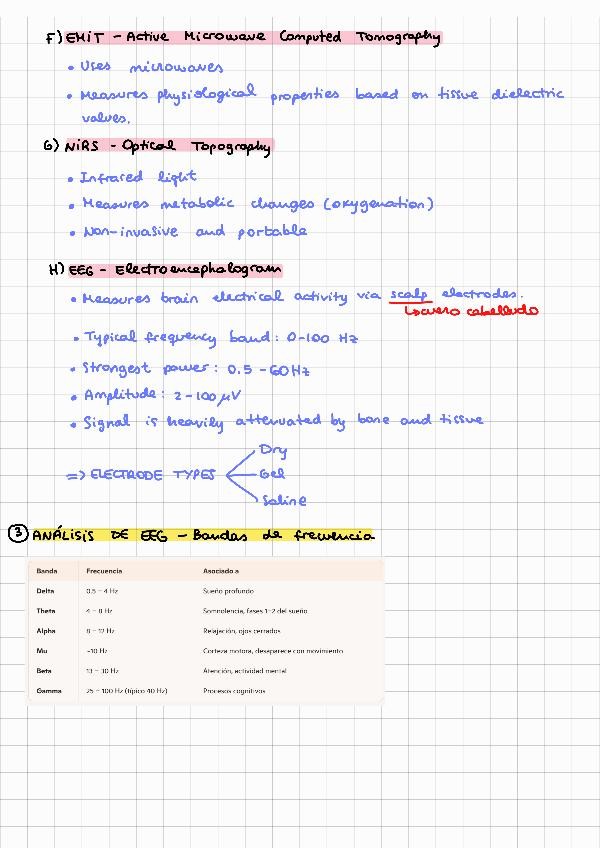 F) EMiT - Active Microwave Computed Tomography
• Uses microwaves
• Measures physiological properties based on tissue dielectric
values.
G) NiRS - Optical Topography
• Infrared light
• Measures metabolic changes (oxygenation)
• Non-invasive and portable
H) EEG - Electroencephalogram
• Measures brain electrical activity via scalp electrodes.
↳ cuero cabelludo
• Typical frequency band: 0-100 Hz
• Strongest power: 0.5 - 60 Hz
• Amplitude: 2-100 μV
• Signal is heavily attenuated by bone and tissue
Dry
=> ELECTRODE TYPES Gel
Saline
③ ANÁLISIS DE EEG - Bandas de frecuencia
Banda Frecuencia Asociado a
Delta 0.5 – 4 Hz Sueño profundo
Theta 4 – 8 Hz Somnolencia, fases 1–2 del sueño
Alpha 8 – 12 Hz Relajación, ojos cerrados
Mu ~10 Hz Corteza motora, desaparece con movimiento
Beta 13 – 30 Hz Atención, actividad mental
Gamma 25 – 100 Hz (típico 40 Hz) Procesos cognitivos